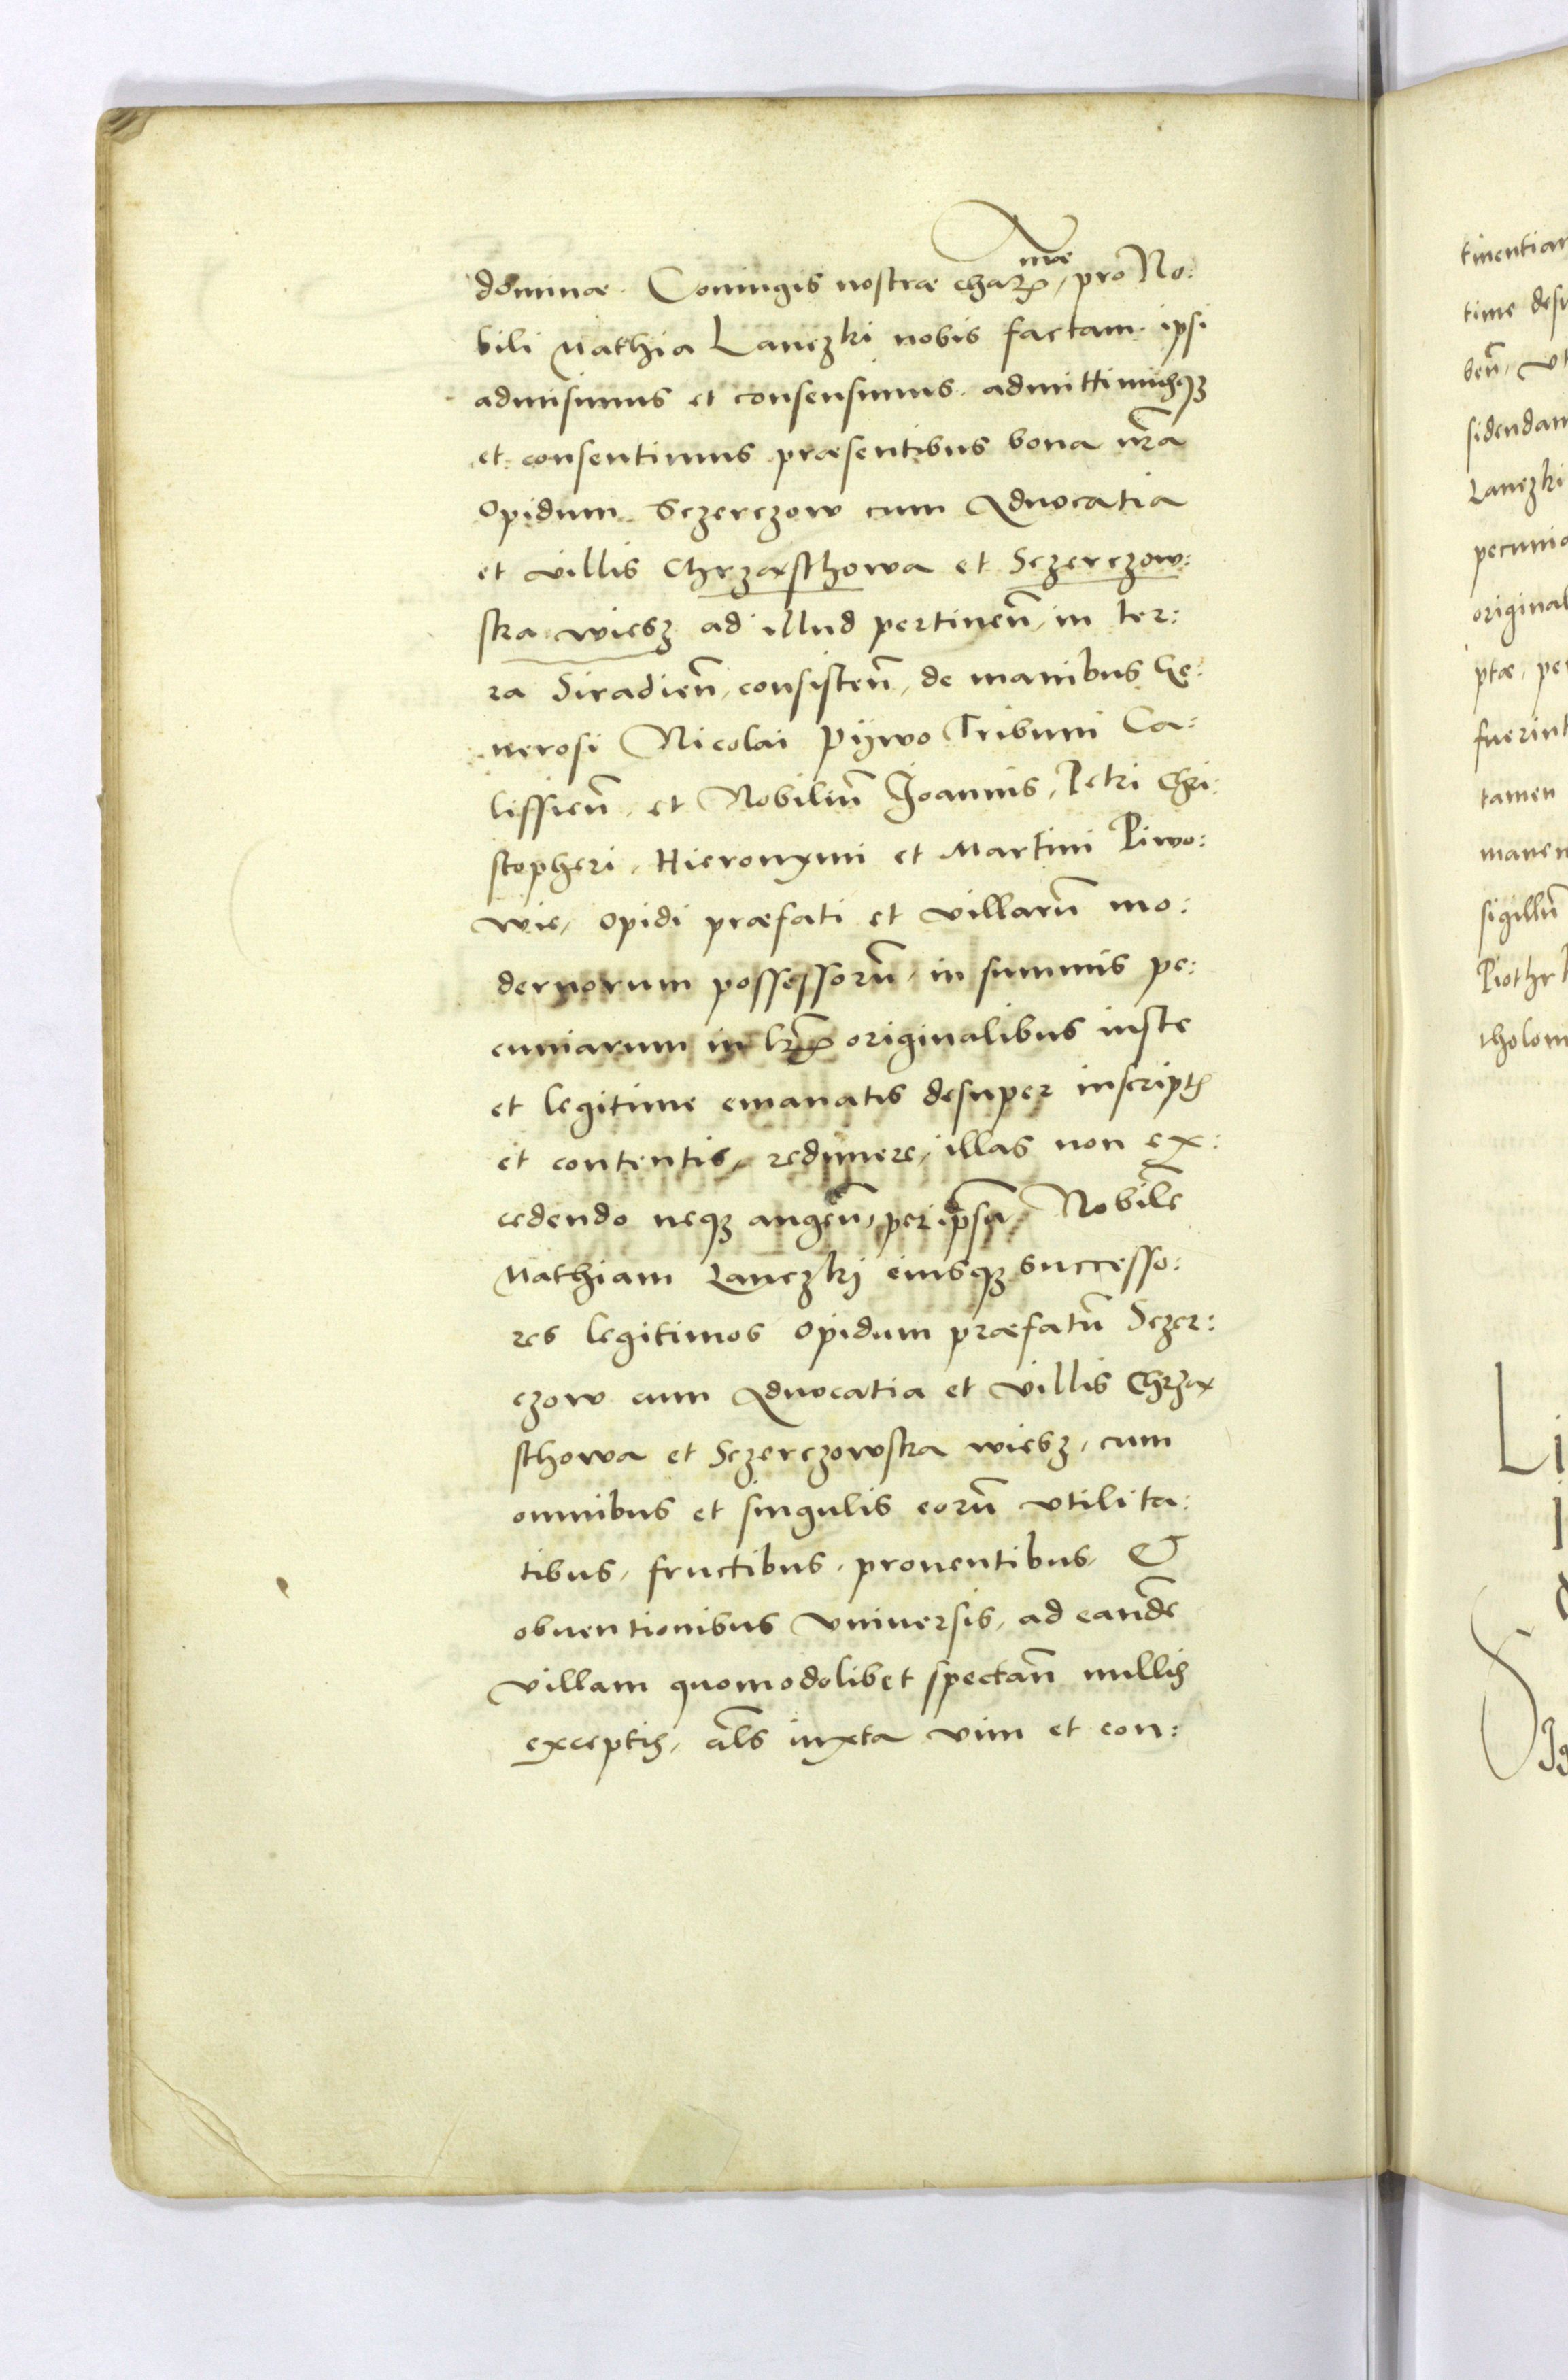 dominæ Coniugis nostræ charꝝmæ, pro No:
bili Mathia Lanczki nobis factam. ipsi
admisimus et consensimus. admittimusqꝫ
et consentimus præsentibus bona nr̃a
Opidum Sczerczow cum Aduocatia
et villis Chrząsthowa et Sczerczow:
ska wiesz ad illud pertineñ, in ter:
ra Siradieñ, consisteñ, de manibus Ge:
nerosi Nicolai Pywo Tribuni Ca:
lissieñ, et Nobiliũ Joannis, Petri Chri:
stopheri, Hieronymi et Martini Piwo:
wie, opidi præfati et villarũ mo:
dernorum possessorũ, in summis pe:
cuniarum in lr̃is originalibus iuste
et legitime emanatis desuper inscriptis
et contentis, redimere, illas non ex:
cedendo neqꝫ augeñ, per ipsũ, Nobilẽ
Mathiam Lanczkj eiusqꝫ successo:
res legitimos opidum præfatũ Sczer:
czow cum Aduocatia et villis Chrzą
sthowa et Sczerczowska wiesz, cum
omnibus et singulis eorũ vtilita:
tibus, fructibus, prouentibus, &
obuentionibus vniuersis, ad eandẽ
villam quomodolibet spectañ nullis
exceptis, al̃s iuxta vim et con:
tinentiar
sidendam
Lanczki
pecunia
original
ptæ, pe
fuerint
tamen
manen
sigillũ
Piothr
tholom